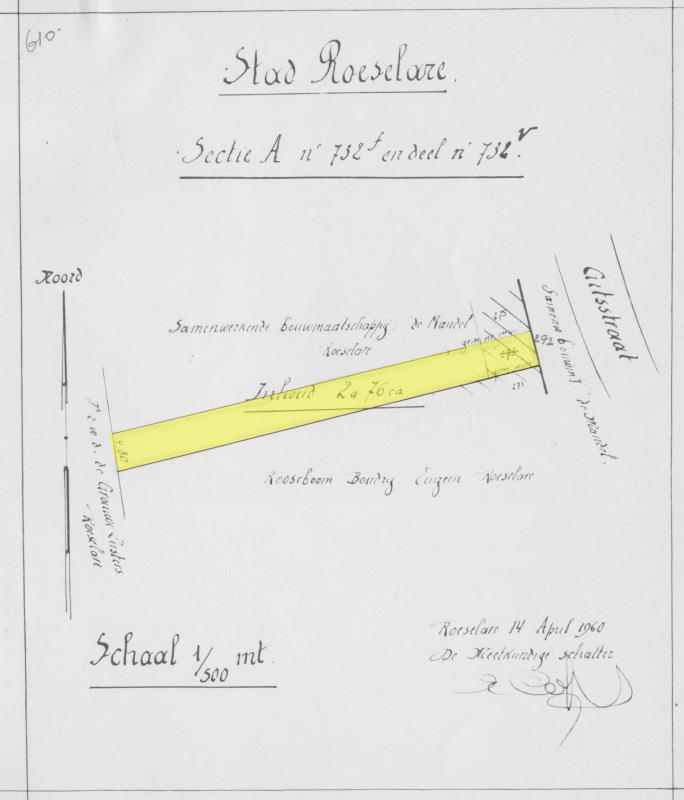 610
Stad Roeselare.
Sectie A n° 732f en deel n° 732v.
Noord
Gitsstraat
Samenwerkende bouwmaatschappij: de Mandel
Roeselare
Samenw bouwm: de Mandel.
275
291
Inhoud 2a 76ca
271
4 80
de Grauwe Zusters
Roeselare
Rooseboom Boudry. Eugeen Roeselare
Schaal 1/500 mt.
Roeselare 14 April 1960
De Meetkundige schatter.